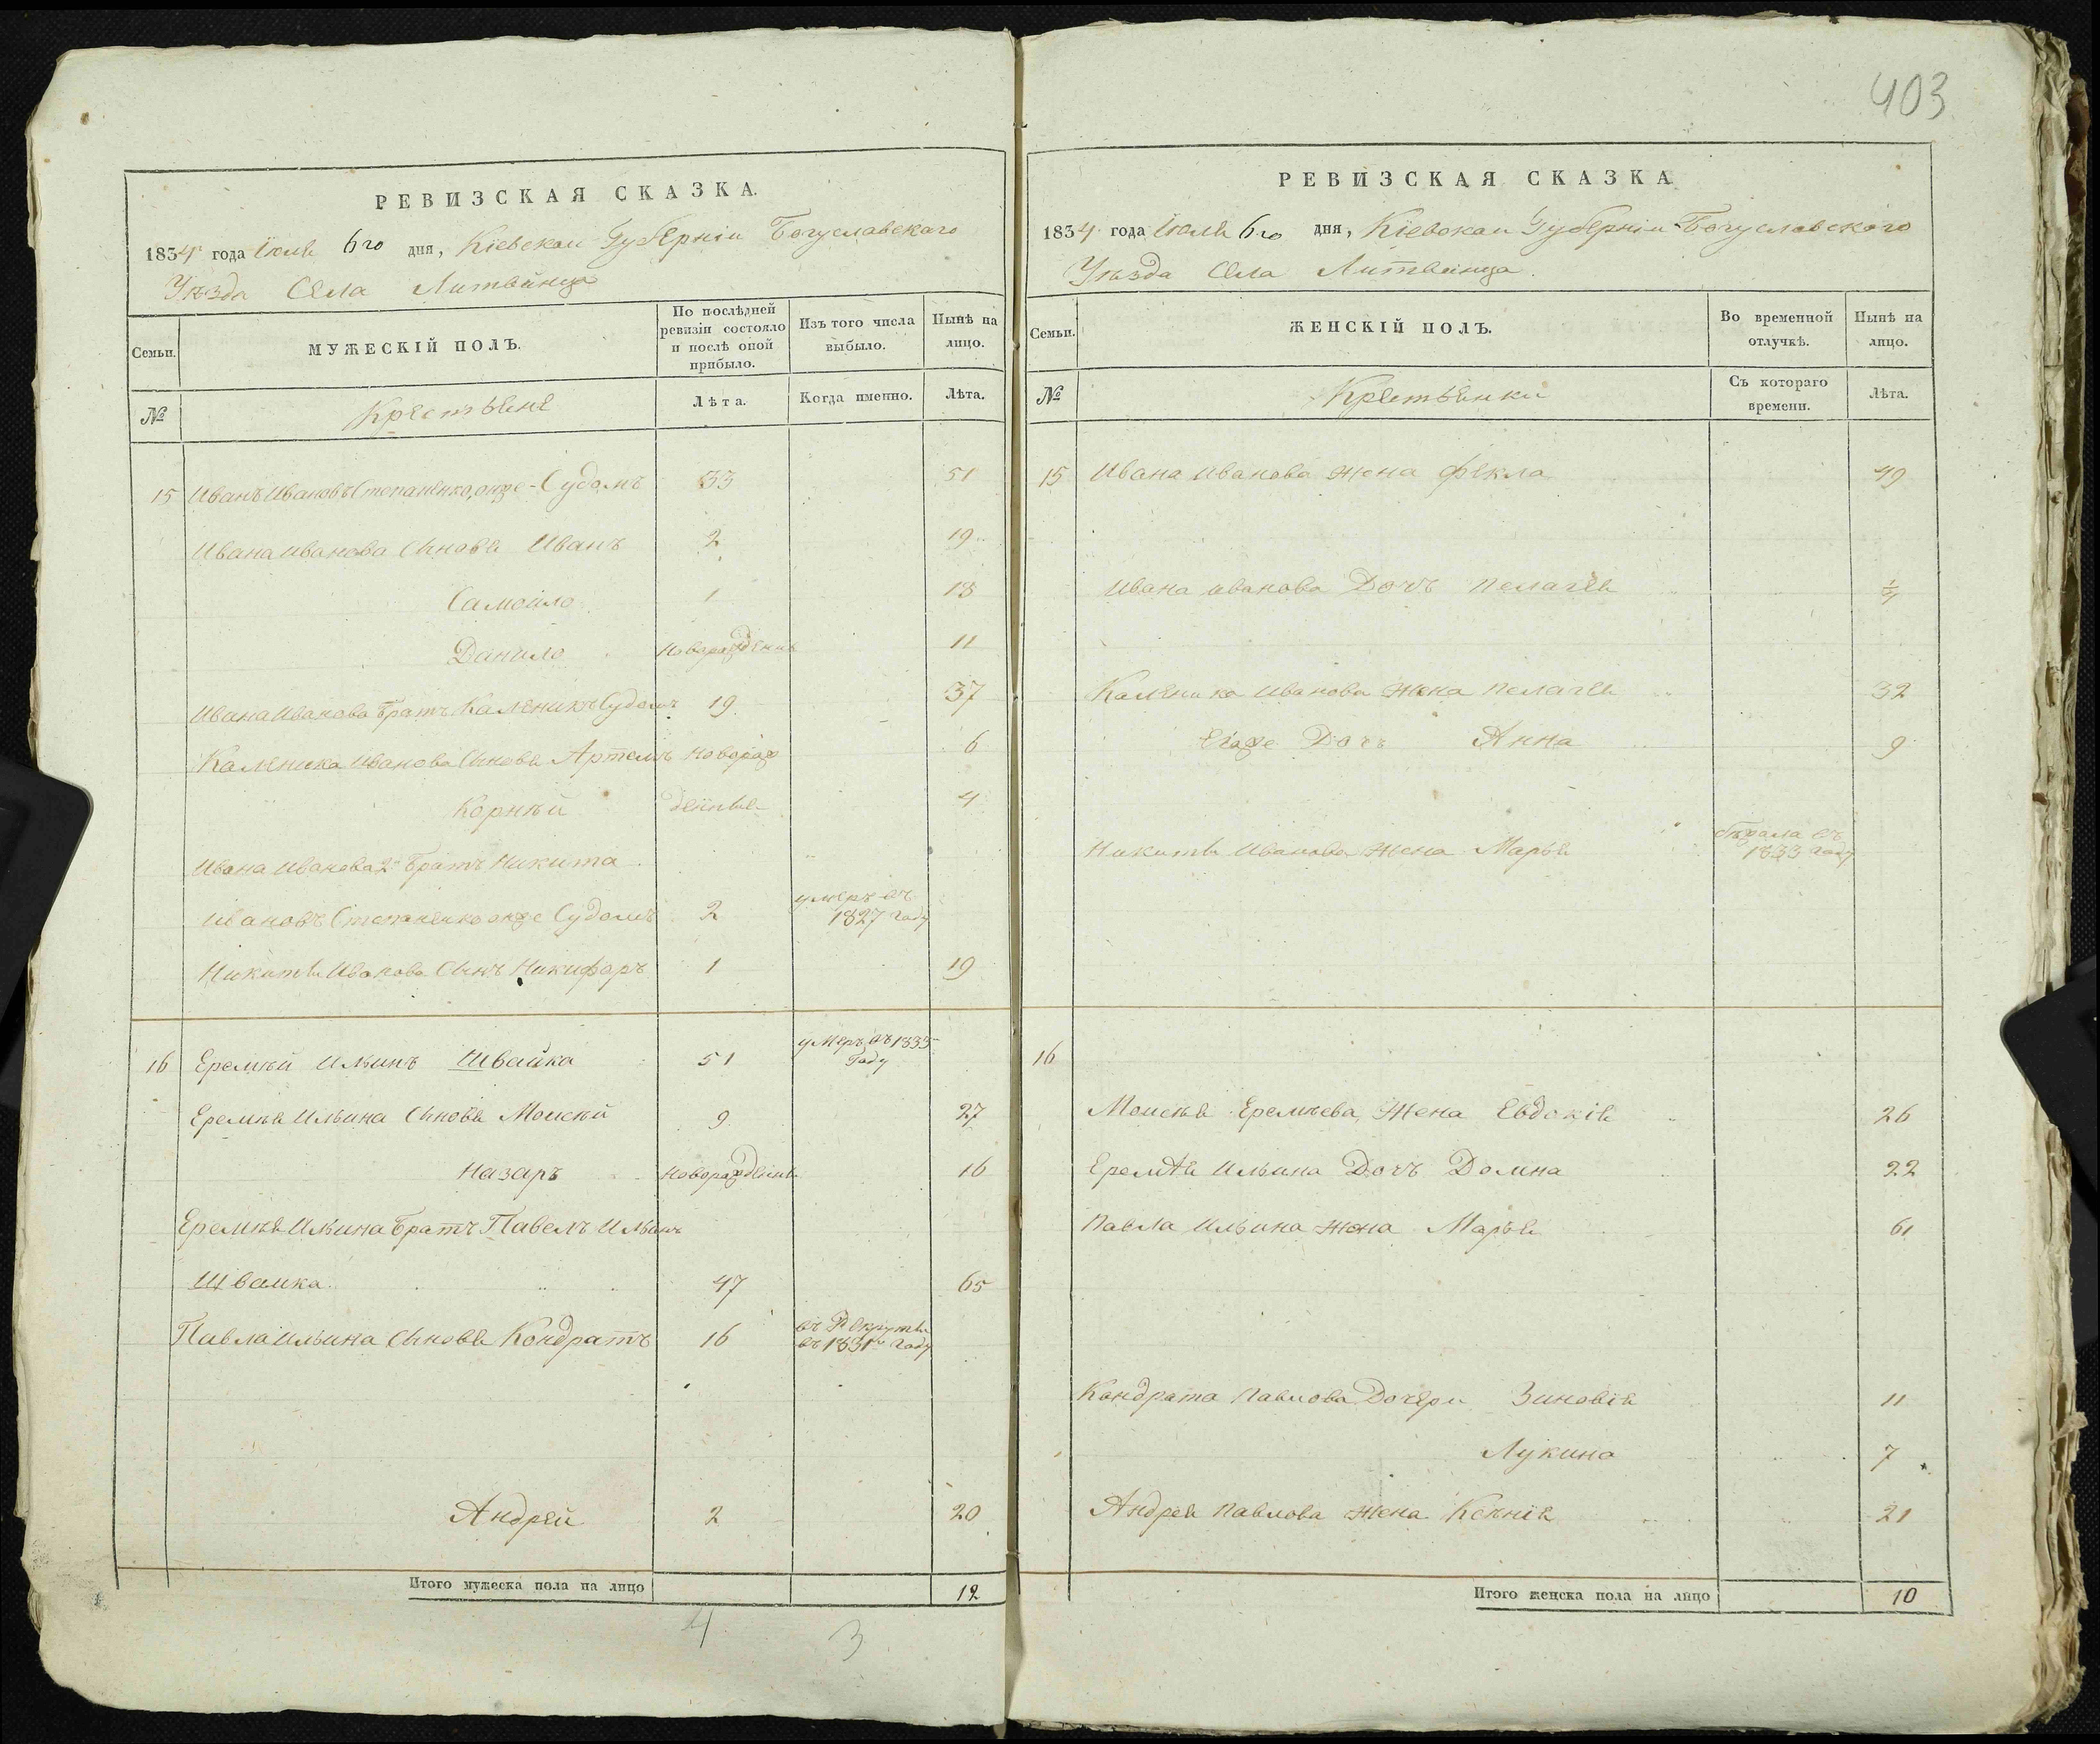 403
РЕВИЗСКАЯ СКАЗКА.
1834 года Июля 6го дня, Кіевской Губерніи Богуславскаго
Уѣзда Села Литвинца
Семьи.
МУЖЕСКІЙ ПОЛЪ.
По послѣдней ревизіи состояло и послѣ оной прибыло.
Изъ того числа выбыло.
Нынѣ на лицо.
№
Крестьяне
Лѣта.
Когда именно.
Лѣта.
15 Иванъ Ивановъ Степаненко, онже Судомъ 33 51
Ивана Иванова Сыновья Иванъ 2 19
Самойло 1 18
Данило новорожденъ 11
Ивана Иванова Братъ Каленикъ Судомъ 19 37
Каленика Иванова Сыновья Артемъ новорож 6
Корнѣй денные 4
Ивана Иванова 2й Братъ Никита
Ивановъ Степаненко онже Судомъ 2 умеръ въ 1827 году
Никиты Иванова Сынъ Никифаръ 1 19
16 Еремѣй Ильинъ Швайка 51 умеръ въ 1833 Году
Еремѣя Ильина Сыновья Моисѣй 9 27
Назаръ новорожденъ 16
Еремѣя Ильина Братъ Павелъ Ильинъ
Швайка 47 65
Павла Ильина Сыновья Кондратъ 16 въ Рекруты въ 1831м году
Андрей 2 20
Итого мужеска пола на лицо 12
4 3
РЕВИЗСКАЯ СКАЗКА
1834 года Июля 6го дня, Кіевской Губерніи Богуславского
Уѣзда Села Литвинца.
Семьи.
ЖЕНСКІЙ ПОЛЪ.
Во временной отлучкѣ.
Нынѣ на лицо.
№
Крестьянки
Съ котораго времени.
Лѣта.
15 Ивана Иванова жена Фекла 49
Ивана Иванова Дочъ Пелагея
Каленика Иванова жена Пелагея 32
Егоже Дочъ Анна 9
Никиты Иванова жена Марья въ 1833 году
16
Моисѣя Еремѣева, Жена Евдокія 26
Еремѣя Ильина Дочъ Домна 22
Павла Ильина жена Марья 61
Кондрата Павлова Дочери Зиновія 11
Лукина 7
Андрея Павлова жена Ксѣнія 21
Итого женска пола на лицо 10